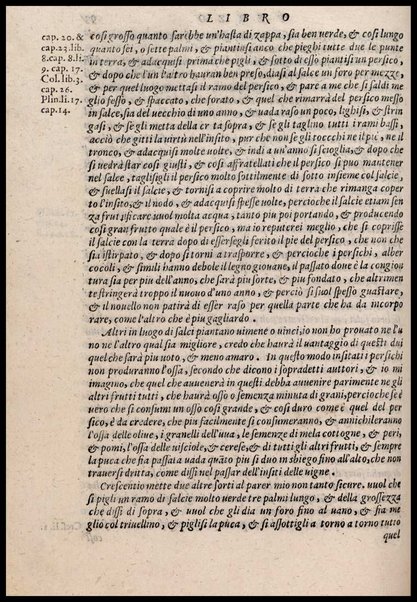 LIBRO
cap. 20. &
cap.23.lib.
8.cap. 8.li.
9. cap. 17.
Col.lib.3.
cap. 26.
Plin.li.17.
cap.14.
cosi grosso quanto sarebbe un'hasta di zappa, sia ben verde, & cosi lungo
quanto sei, o sette palmi, & piantisi anco che pieghi tutte due le punte
in terra, & adacquisi prima che pigli, & sotto di esso piantisi un persico,
& dopo che l'un l'altro hauran ben preso, diasi al salce un foro per mezzo,
& per quel luogo mettasi il ramo del persico, & pare a me che si saldi me
glio fesso, & spaccato, che forato, & quel che rimarrà del persico messo
in salce, sia del uecchio di uno anno, & uada raso un poco, lighisi, & strin
gasi, & se gli metta della creta sopra, & se gli taglino tutti i rami bassi,
acciò che gitti la uirtù nell'insito, pur che non se gli tocchi ne il piè, ne il
tronco, & adacquisi molte uolte, & indi a un'anno si scioglia, & dopo che
si uedrà star cosi giusti, & cosi affratellati che il persico si può mantener
nel salce, taglisigli il persico molto sottilmente di sotto insieme col salcie,
& suellasi il salcie, & tornisi a coprire molto di terra che rimanga coper
to l'insito, & il nodo, & adacquisi spesse uolte, percioche il salcie etiam sen
za fruttificare uuol molta acqua, tanto piu poi portando, & producendo
cosi gran frutto quale è il persico, ma io reputerei meglio, che si coprisse
il salcie con la terra dopo di essersegli ferito il piè del persico, che non che
sia istirpato, & dopo si torni a trasporre, & percioche i persichi, alber
cocoli, & simili hanno debole il legno giouane, il passato doue è la congion
tura sia per piu dell'anno, che sarà piu forte, & piu fondato, che altrimen
te stringerà troppo il nuouo d'uno anno, & perciò si suol spesso guastare,
& il nouello non patirà di esser raso per quella parte che ha da incorpo
rare, come l'altro che è piu gagliardo.
Altri in luogo di salci piantano uimene o uinci, io non ho prouato ne l'u
no ne l'altro qual sia migliore, credo che haurà il uantaggio di questi dui
quel che sarà piu uoto, & meno amaro. In questo modo insitati i persichi
non produranno l'ossa, secondo che dicono i sopradetti auttori, & io mi
imagino, che quel che auuenerà in questi debba auuenire parimente ne gli
altri frutti tutti, che haurà osso o semenza minuta di grani, percioche se è
uero che si consumi un osso cosi grande, & cosi duro come è quel del per
sico, è da credere, che piu facilmente si consumeranno, & annichileranno
l'ossa delle oliue, i granelli dell'uua, le semenze di mela cottogne, & peri,
& pomi, l'ossa delle uisciole, & cerese, & di tutti gli altri frutti, & sempre
la puca che sia passata uada quato piu si dio in sbiego fino all'alto, che non
trauersi dritta, come dissi nel passar dell'insiti delle uigne.
Crescentio mette due altre sorti al parer mio non tanto sicure. uuol che
si pigli un ramo di salcie molto uerde tre palmi lungo, & della grossezza
che dissi di sopra, & uuol che gli dia un foro fino al uano, & sia me
glio col triuellino, & piglisi la puca, & si assottigli a torno a torno tutto
quel